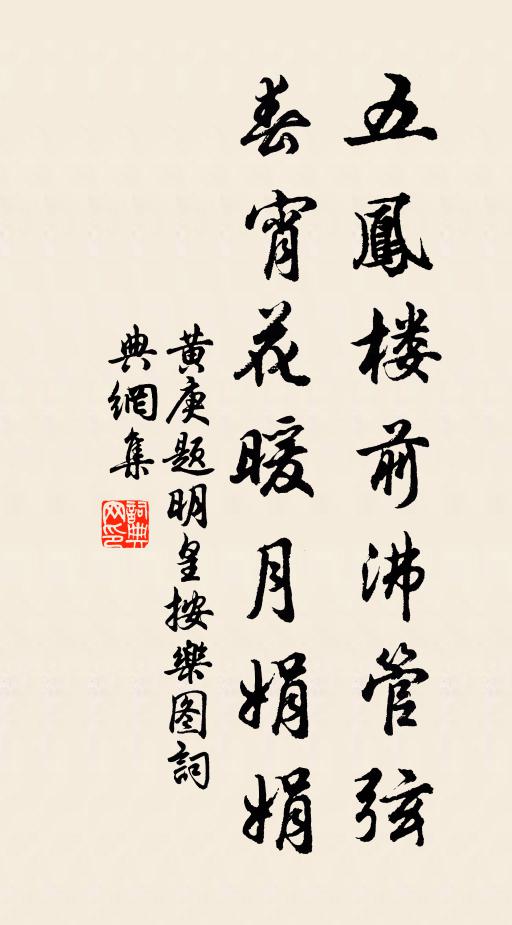 五鳳楼前沸管弦
春宵花暖月娟娟
黄庚题明皇按樂图詞
典網集
詞典网印